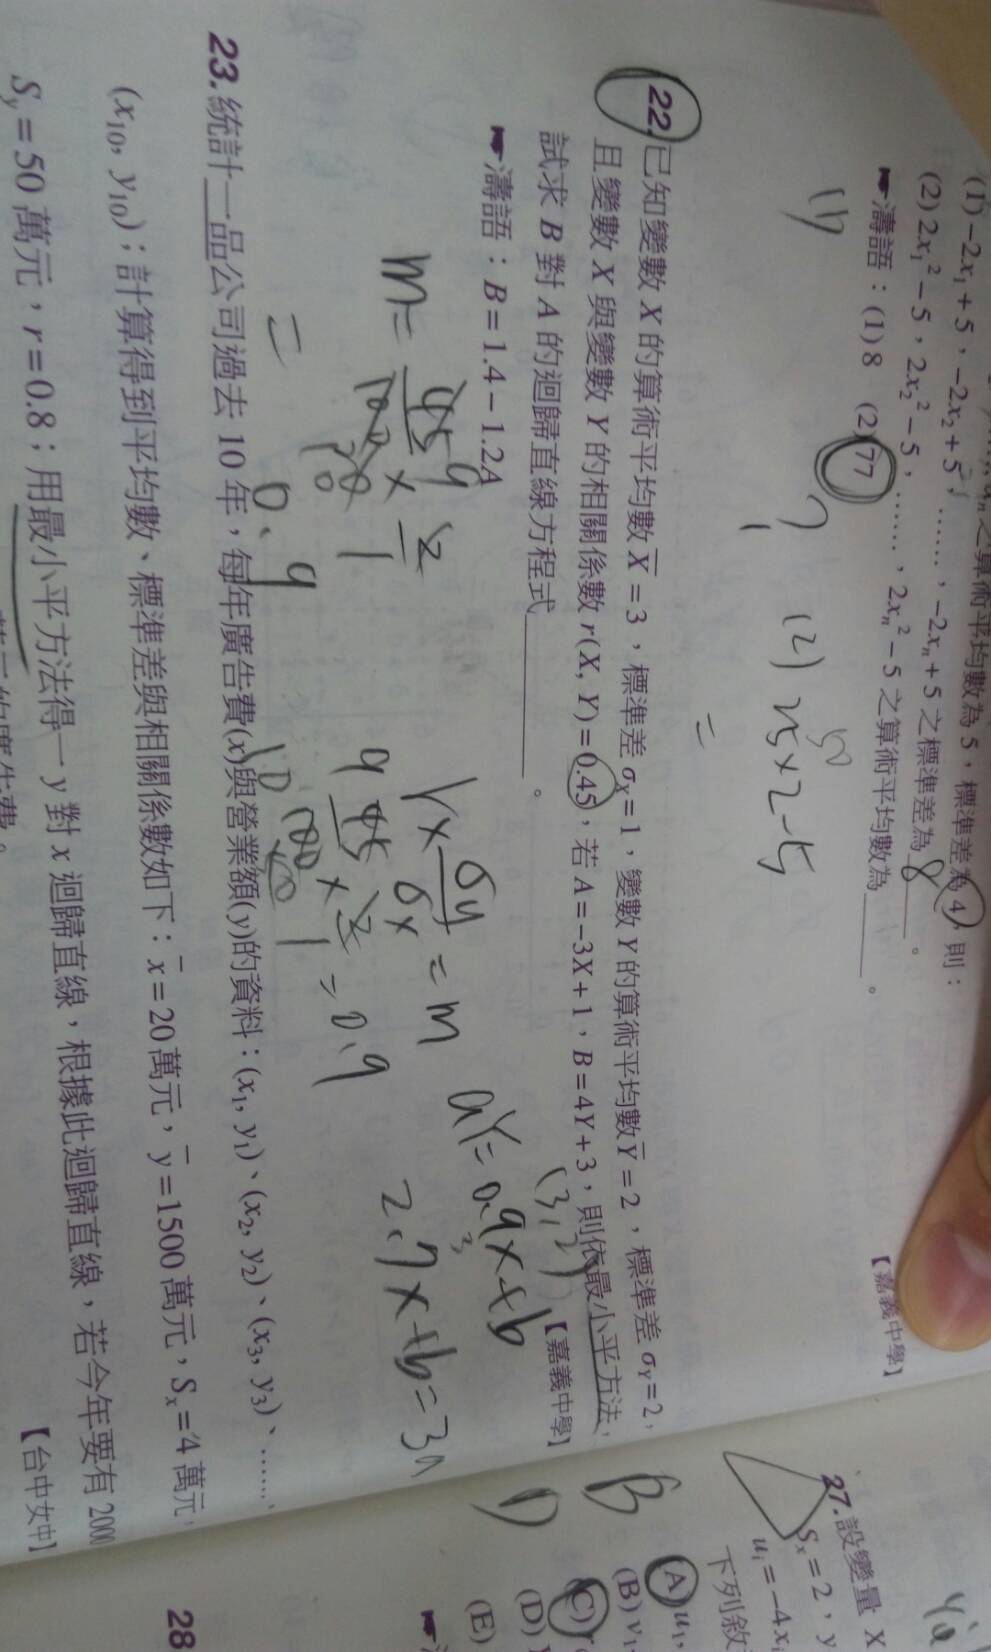 之算術平均數為 5，標準差為 4，則：
(1) -2x₁+5，-2x₂+5，……，-2xₙ+5 之標準差為 8 。
(2) 2x₁²-5，2x₂²-5，……，2xₙ²-5 之算術平均數為______。
☛濤語：(1) 8 (2) 77
【嘉義中學】
(1)
(2) 25×2-5
50
=
22. 已知變數 X 的算術平均數 X̄=3，標準差 σₓ=1，變數 Y 的算術平均數 Ȳ=2，標準差 σ_Y=2，
且變數 X 與變數 Y 的相關係數 r(X, Y)=0.45，若 A=-3X+1，B=4Y+3，則依最小平方法，
試求 B 對 A 的迴歸直線方程式______。
【嘉義中學】
☛濤語：B=1.4-1.2A
(3,2)
r× σy/σx = m
y=0.9x+b
2.7x+b=3
=0.9
m=
= 0.9
23. 統計一品公司過去 10 年，每年廣告費(x)與營業額(y)的資料：(x₁, y₁)、(x₂, y₂)、(x₃, y₃)、……，
(x₁₀, y₁₀)；計算得到平均數、標準差與相關係數如下：x̄=20 萬元，ȳ=1500 萬元，Sₓ=4 萬元，
S_y=50 萬元，r=0.8；用最小平方法得一 y 對 x 迴歸直線，根據此迴歸直線，若今年要有 2000
的廣告費。
【台中女中】
27. 設變量 X
Sₓ=2，y
uᵢ=-4xᵢ
下列敘
(A) u₁,
(B) v₁,
(C) r
(D)
(E)
B
D
28